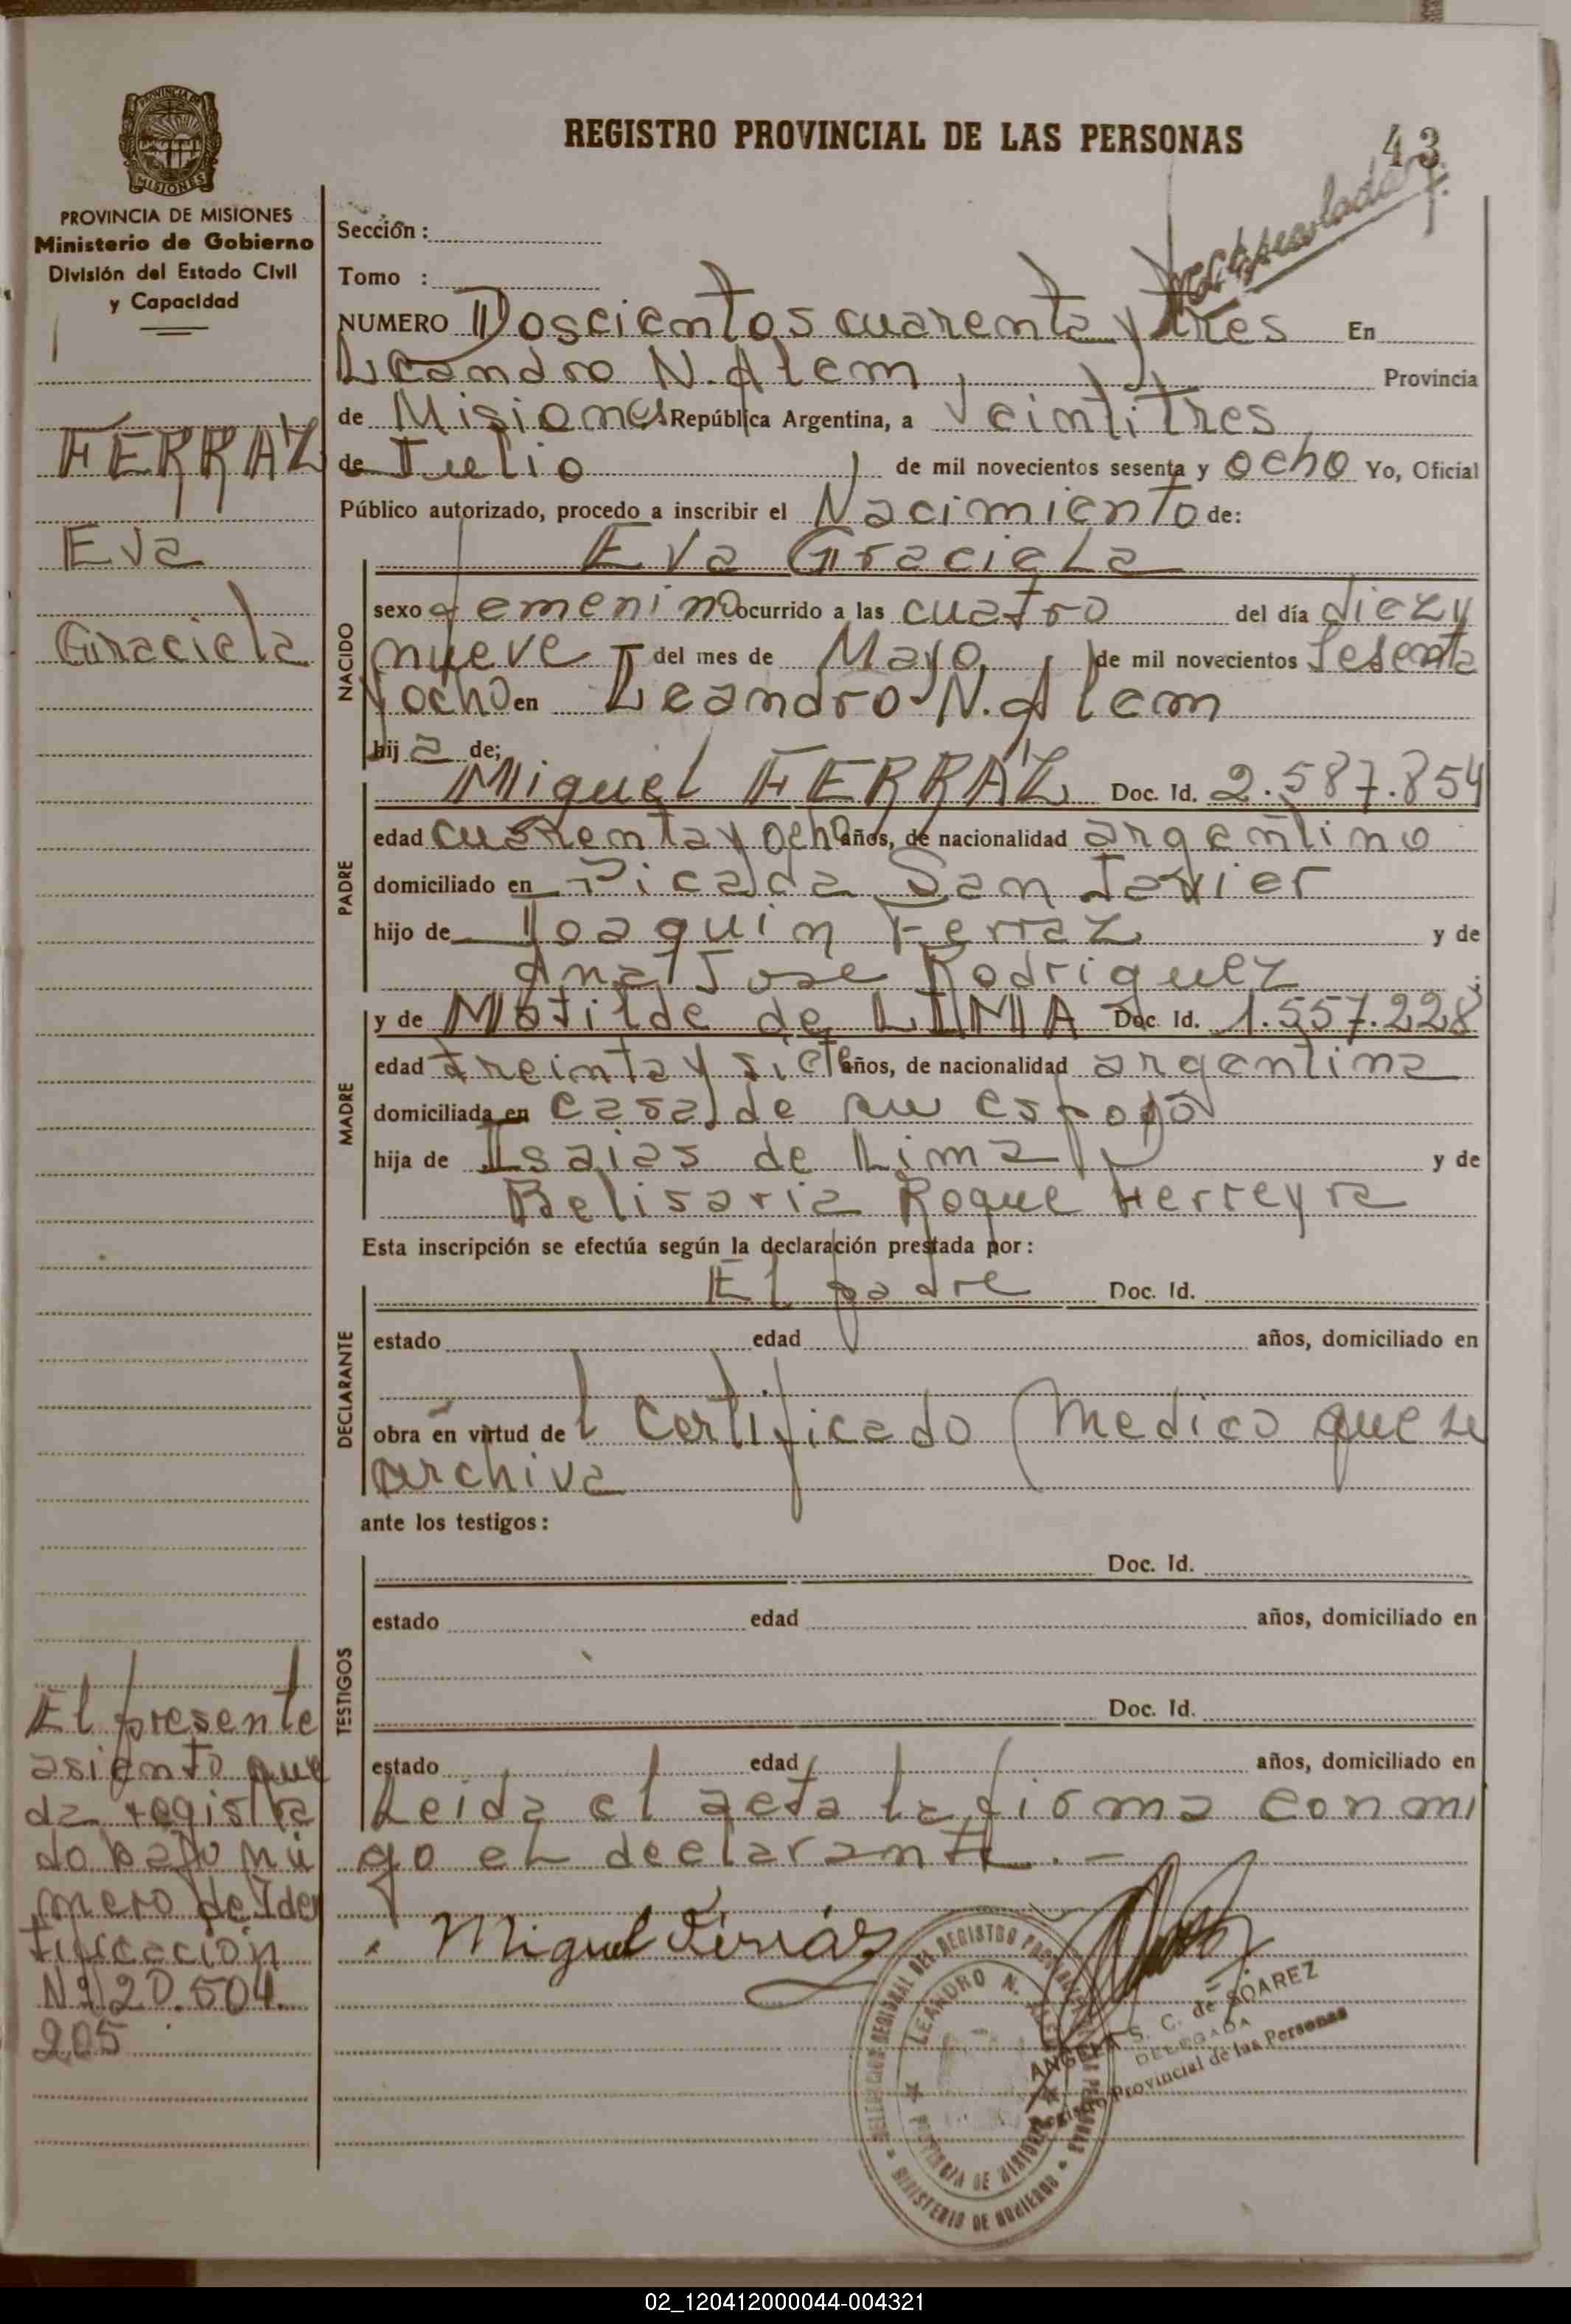 REGISTRO PROVINCIAL DE LAS PERSONAS
43
PROVINCIA DE MISIONES
Ministerio de Gobierno
División del Estado Civil
y Capacidad
FERRAZ
Eva
Graciela
El presente
asiento que
da registra
do bajo nú
mero de Iden
tificación
Nº 20.504.
205
Sección :
Tomo :
NUMERO Doscientos cuarenta y tres En
Leandro N. Alem Provincia
de Misiones República Argentina, a Veintitres
de Julio de mil novecientos sesenta y ocho Yo, Oficial
Público autorizado, procedo a inscribir el Nacimiento de:
NACIDO
Eva Graciela
sexo femenino ocurrido a las cuatro del día diez y
nueve del mes de Mayo de mil novecientos Sesenta
y ocho en Leandro N. Alem
hija de;
PADRE
Miguel FERRAZ Doc. Id. 2.587.854
edad cuarenta y ocho años, de nacionalidad argentino
domiciliado en Picada San Javier
hijo de Joaquin Ferraz y de
Ana Jose Rodriguez ;
MADRE
y de Matilde de LIMA Doc. Id. 1.557.228
edad treinta y siete años, de nacionalidad argentina
domiciliada en casa de su esposo
hija de Isaias de Lima y de
Belisaria Roque Herreyra
Esta inscripción se efectúa según la declaración prestada por :
DECLARANTE
El padre Doc. Id.
estado edad años, domiciliado en
obra en virtud del Certificado Medico que se
archiva
ante los testigos :
TESTIGOS
Doc. Id.
estado edad años, domiciliado en
Doc. Id.
estado edad años, domiciliado en
Leida el acta la firma conmi
go el declarante. -
Miguel Ferráz
DELEGACION REGIONAL DEL REGISTRO PROVINCIAL DE LAS PERSONAS
LEANDRO N. ALEM
PROVINCIA DE MISIONES
MINISTERIO DE GOBIERNO
ANGELA S. C. de SOAREZ
DELEGADA
Registro Provincial de las Personas
02_120412000044-004321